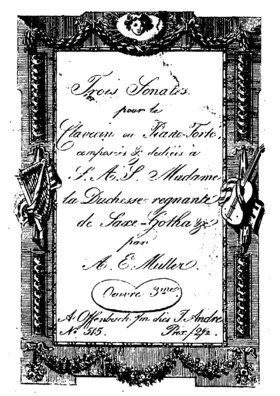 Trois Sonates
pour le
Clavecin ou Piano Forte
composées & dediées à
S. A. S. Madame
la Duchesse regnante
de Saxe-Gotha &c
par
A. E. Muller.
Oeuvre 3me
A Offenbach s/m chez J. André
No. 515. Prix f 2½